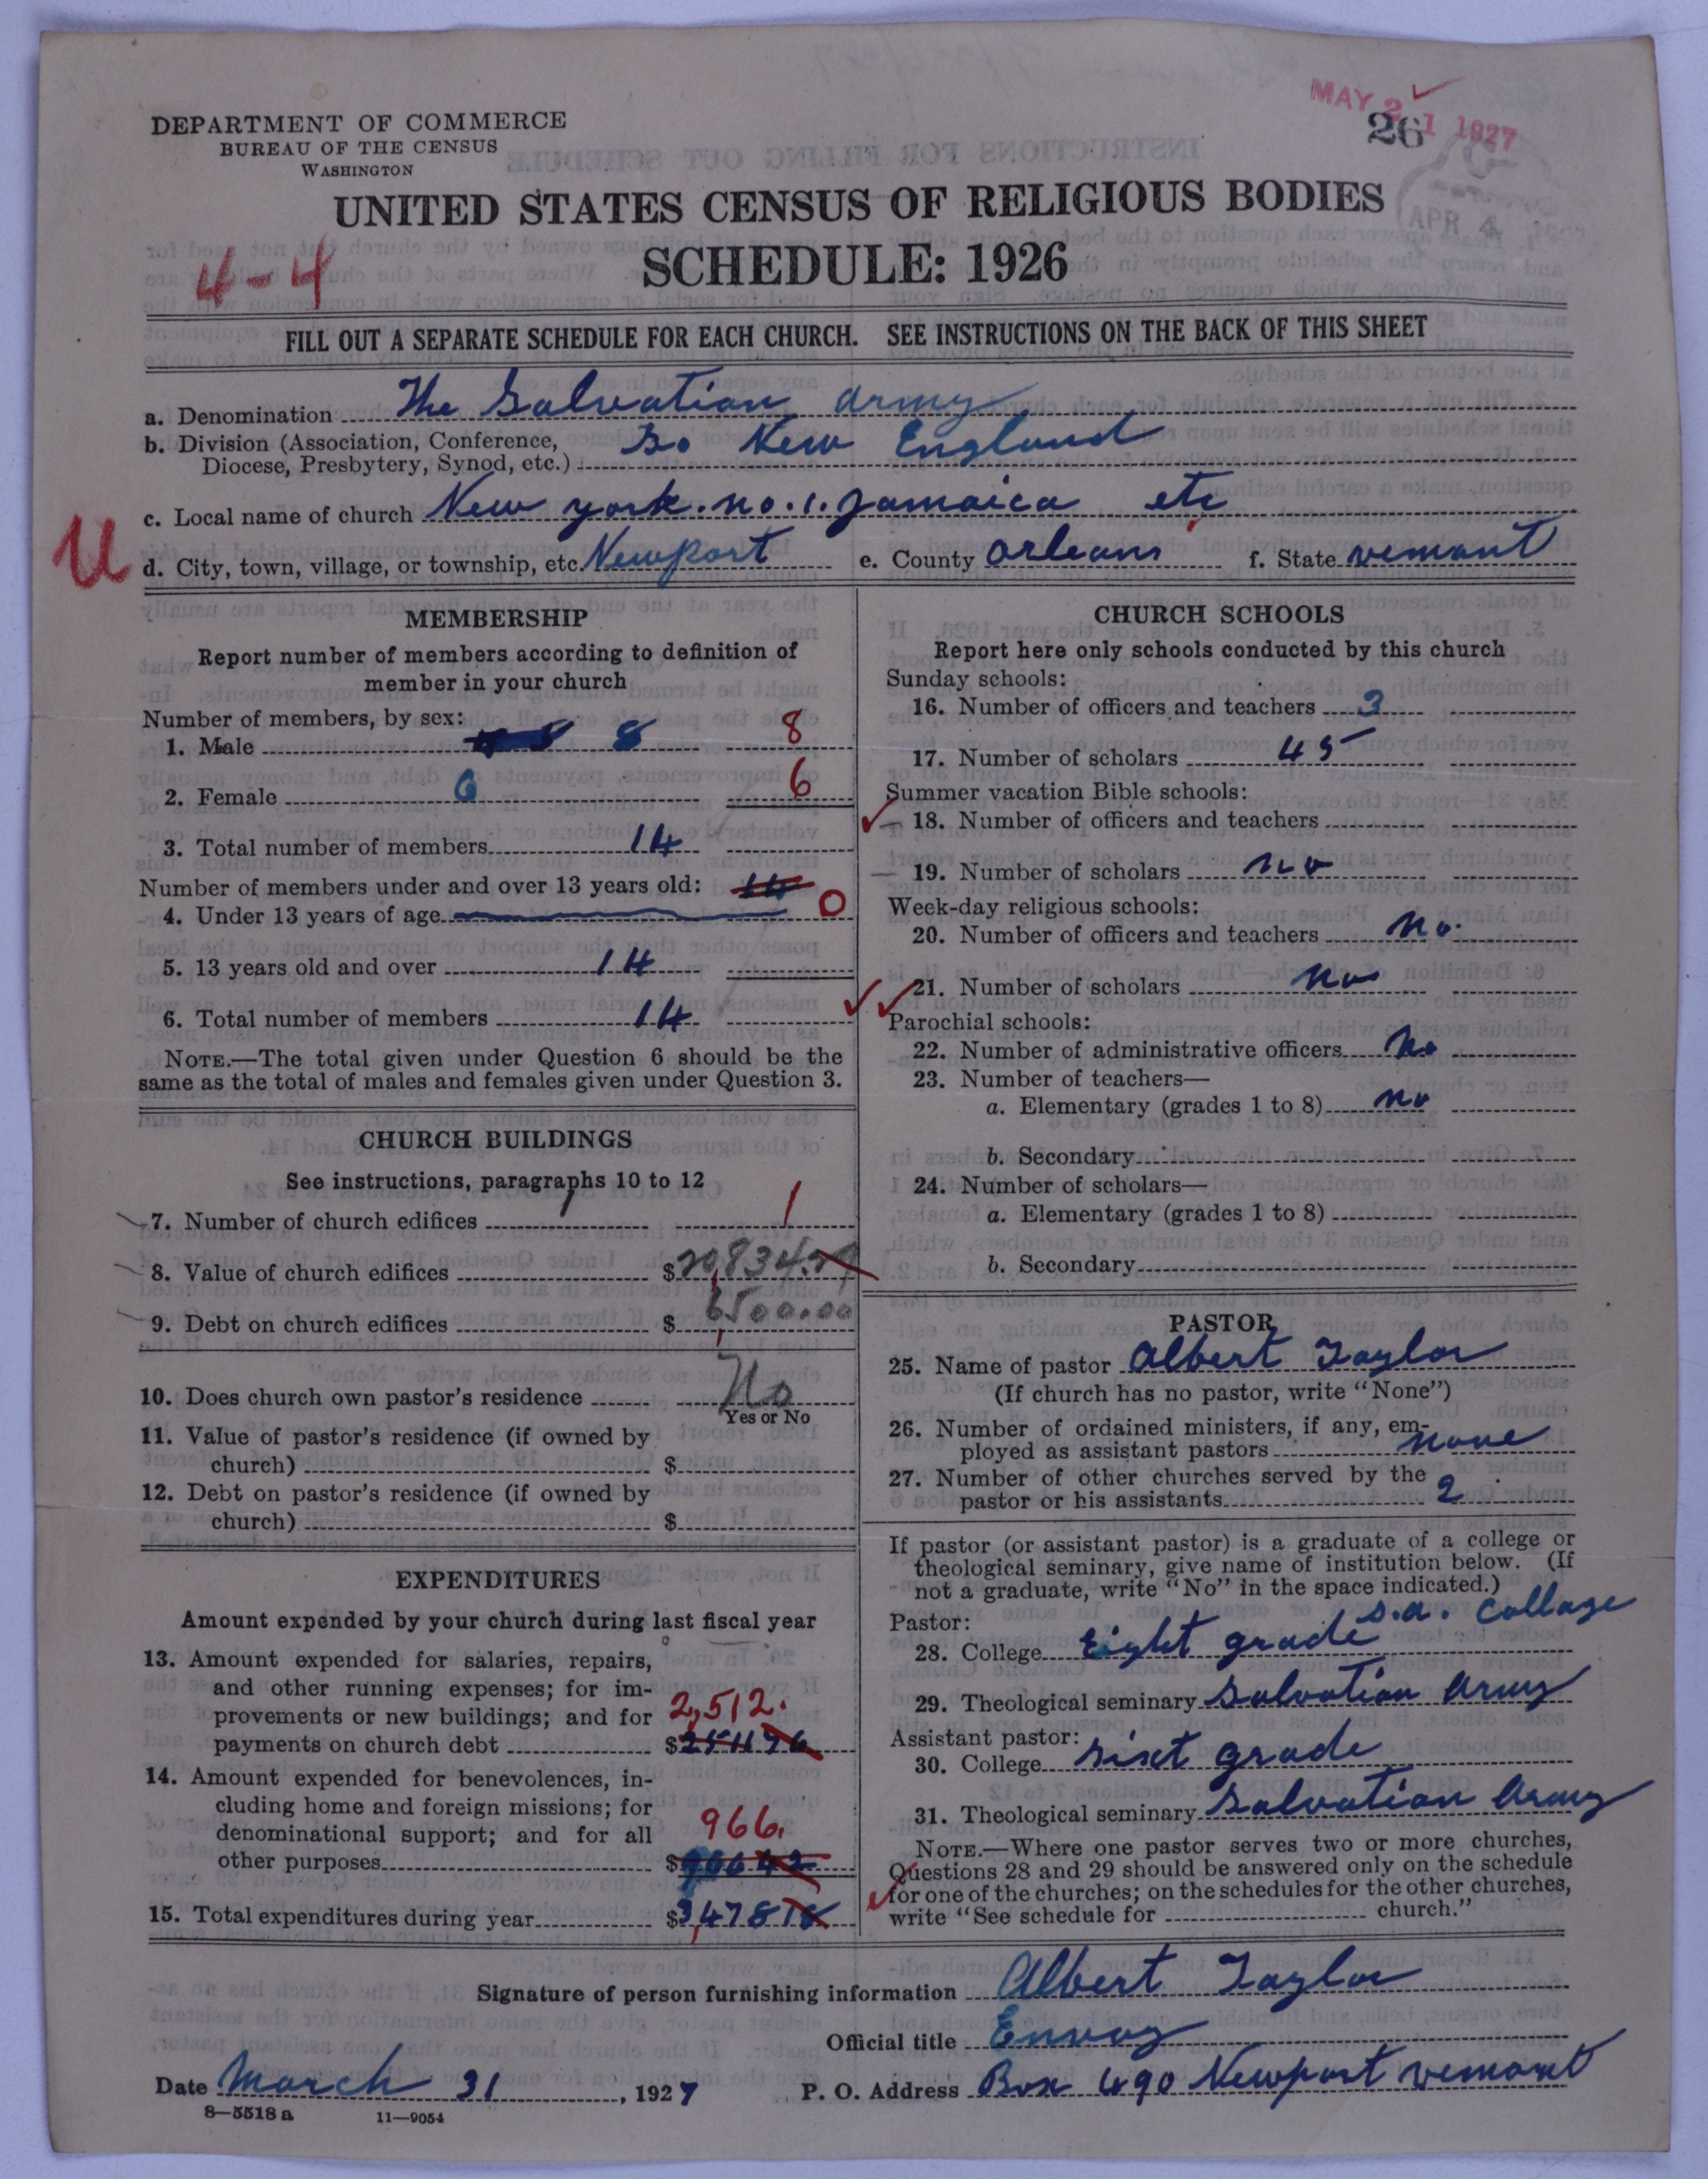 MAY 21 1927
26
APR 4
DEPARTMENT OF COMMERCE
BUREAU OF THE CENSUS
WASHINGTON
UNITED STATES CENSUS OF RELIGIOUS BODIES
4-4
SCHEDULE: 1926
FILL OUT A SEPARATE SCHEDULE FOR EACH CHURCH. SEE INSTRUCTIONS ON THE BACK OF THIS SHEET
a. Denomination The Salvation Army
b. Division (Association, Conference, So New England
Diocese, Presbytery, Synod, etc.)
c. Local name of church New york. no. 1. Jamaica etc
U
d. City, town, village, or township, etc. Newport e. County Orleans f. State vemont
MEMBERSHIP
Report number of members according to definition of
member in your church
Number of members, by sex:
1. Male 8 8
2. Female 6 6
3. Total number of members 14
Number of members under and over 13 years old: 14
4. Under 13 years of age 0
5. 13 years old and over 14
6. Total number of members 14
NOTE.—The total given under Question 6 should be the
same as the total of males and females given under Question 3.
CHURCH BUILDINGS
See instructions, paragraphs 10 to 12
7. Number of church edifices 1 1
8. Value of church edifices $20,834.
9. Debt on church edifices $6,500.00
10. Does church own pastor's residence No
Yes or No
11. Value of pastor's residence (if owned by
church) $
12. Debt on pastor's residence (if owned by
church) $
EXPENDITURES
Amount expended by your church during last fiscal year
13. Amount expended for salaries, repairs,
and other running expenses; for im-
provements or new buildings; and for 2,512.
payments on church debt $251176
14. Amount expended for benevolences, in-
cluding home and foreign missions; for
denominational support; and for all 966.
other purposes $96642
15. Total expenditures during year $3,47818
CHURCH SCHOOLS
Report here only schools conducted by this church
Sunday schools:
16. Number of officers and teachers 3
17. Number of scholars 45
Summer vacation Bible schools:
18. Number of officers and teachers
19. Number of scholars no
Week-day religious schools:
20. Number of officers and teachers no.
21. Number of scholars no
Parochial schools:
22. Number of administrative officers no
23. Number of teachers—
a. Elementary (grades 1 to 8) no
b. Secondary
24. Number of scholars—
a. Elementary (grades 1 to 8)
b. Secondary
PASTOR
25. Name of pastor Albert Taylor
(If church has no pastor, write "None")
26. Number of ordained ministers, if any, em-
ployed as assistant pastors none
27. Number of other churches served by the
pastor or his assistants 2
If pastor (or assistant pastor) is a graduate of a college or
theological seminary, give name of institution below. (If
not a graduate, write "No" in the space indicated.)
Pastor: S.A. Collage
28. College Eight grade
29. Theological seminary Salvation Army
Assistant pastor:
30. College Sixt grade
31. Theological seminary Salvation Army
NOTE.—Where one pastor serves two or more churches,
Questions 28 and 29 should be answered only on the schedule
for one of the churches; on the schedules for the other churches,
write "See schedule for church."
Signature of person furnishing information Albert Taylor
Official title Envoy
Date March 31, 1927 P. O. Address Box 490 Newport vemont
8—5518 a 11—9054